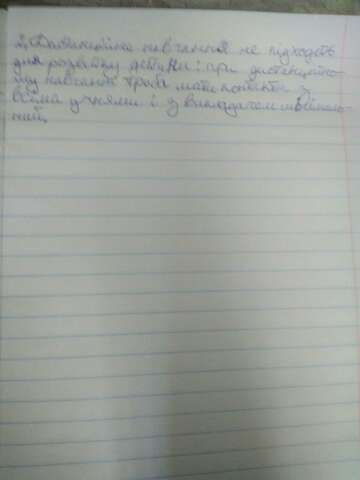 2. Дистанційне навчання не підходить
для розвитку дитини: при дистанційно-
му навчанні треба мати контакт з
всіма учнями і з викладачем
ний.